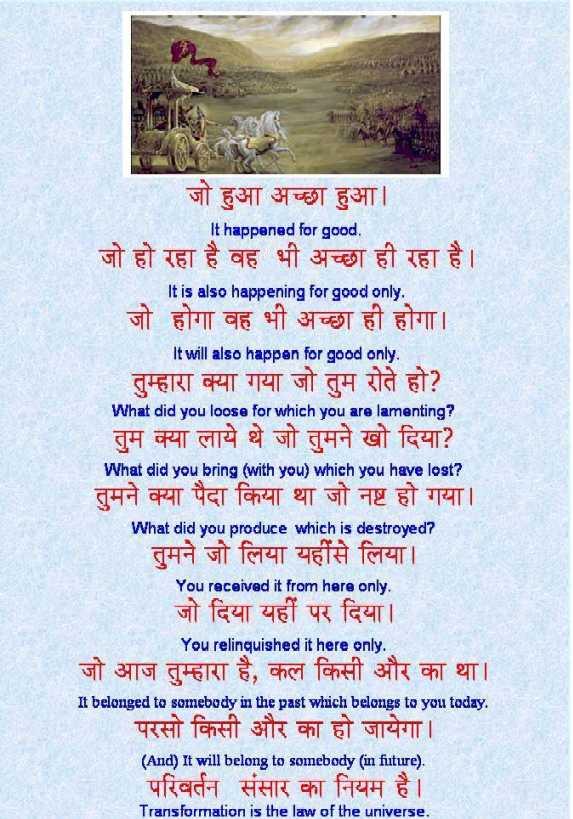 जो हुआ अच्छा हुआ।
It happened for good.
जो हो रहा है वह भी अच्छा ही रहा है।
It is also happening for good only.
जो होगा वह भी अच्छा ही होगा।
It will also happen for good only.
तुम्हारा क्या गया जो तुम रोते हो?
What did you loose for which you are lamenting?
तुम क्या लाये थे जो तुमने खो दिया?
What did you bring (with you) which you have lost?
तुमने क्या पैदा किया था जो नष्ट हो गया।
What did you produce which is destroyed?
तुमने जो लिया यहींसे लिया।
You received it from here only.
जो दिया यहीं पर दिया।
You relinquished it here only.
जो आज तुम्हारा है, कल किसी और का था।
It belonged to somebody in the past which belongs to you today.
परसो किसी और का हो जायेगा।
(And) It will belong to somebody (in future).
परिवर्तन संसार का नियम है।
Transformation is the law of the universe.